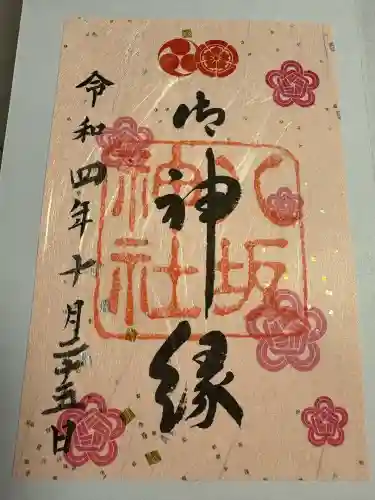 御神縁
八坂神社
令和四年十月二十五日